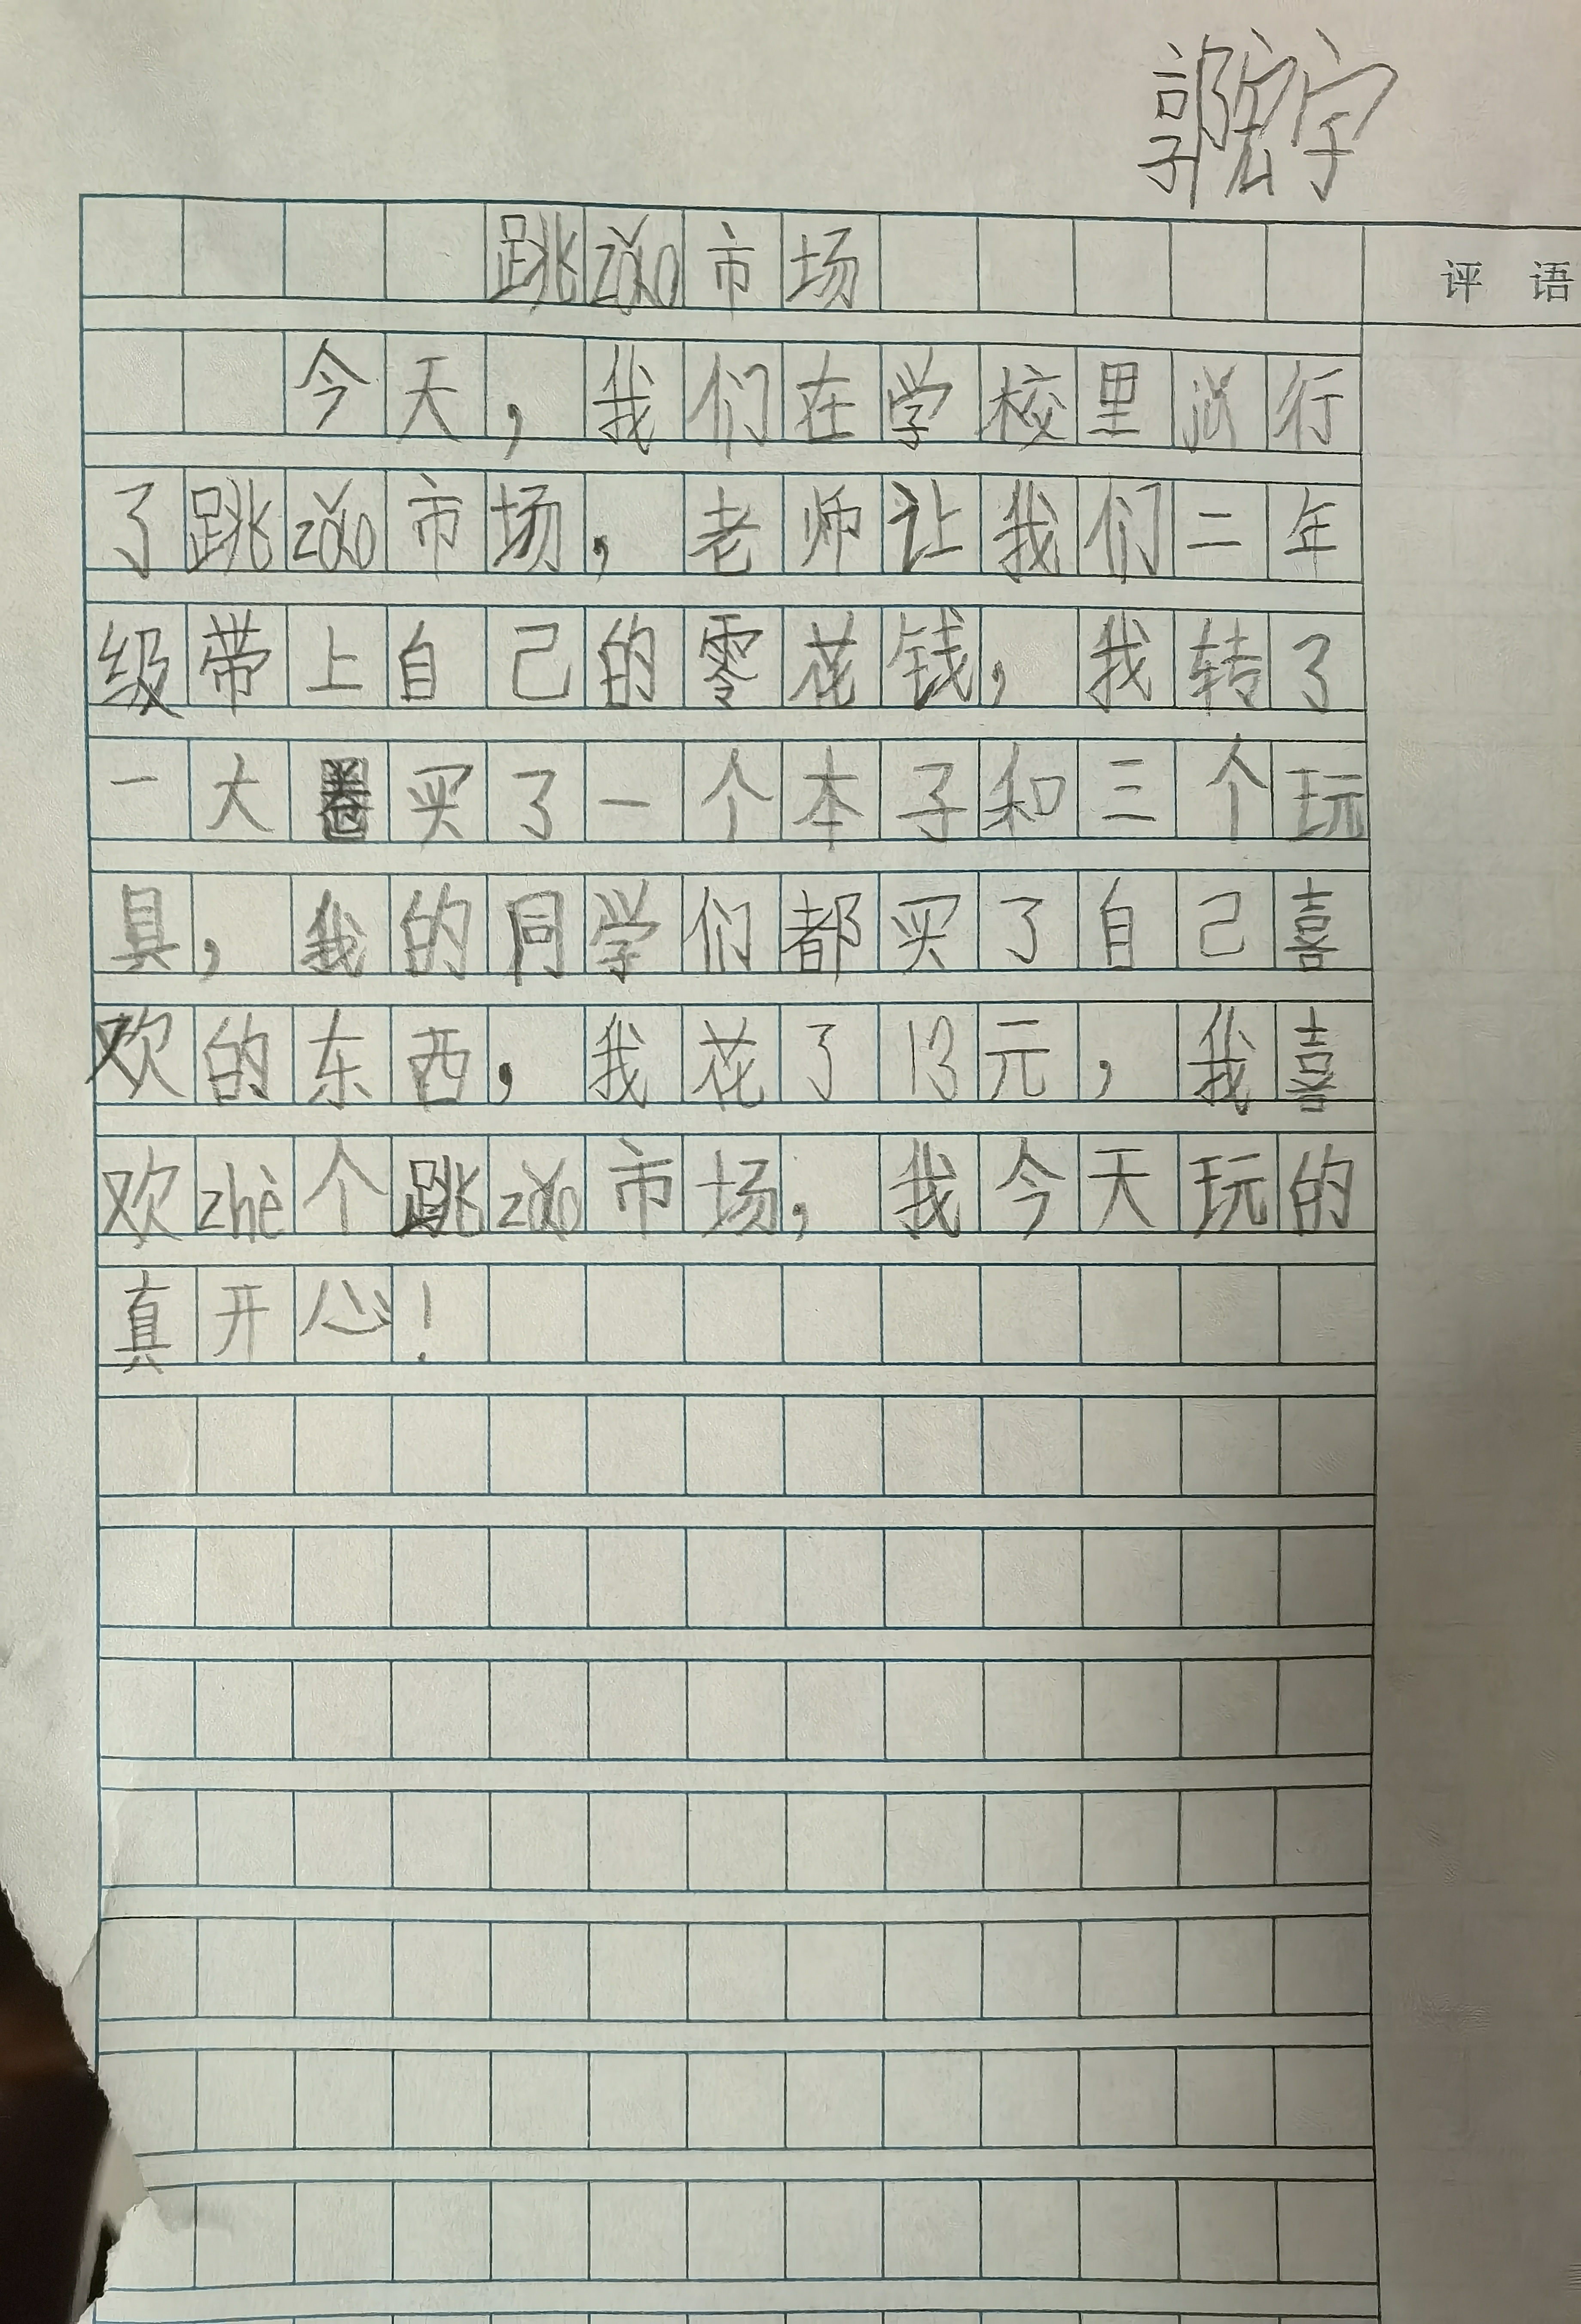 郭宏宇
跳zǎo市场
评 语
今天，我们在学校里行
了跳zǎo市场，老师让我们二年
级带上自己的零花钱，我转了
一大圈买了一个本子和三个玩
具，我的同学们都买了自己喜
欢的东西，我花了13元，我喜
欢zhè个跳zǎo市场，我今天玩的
真开心！